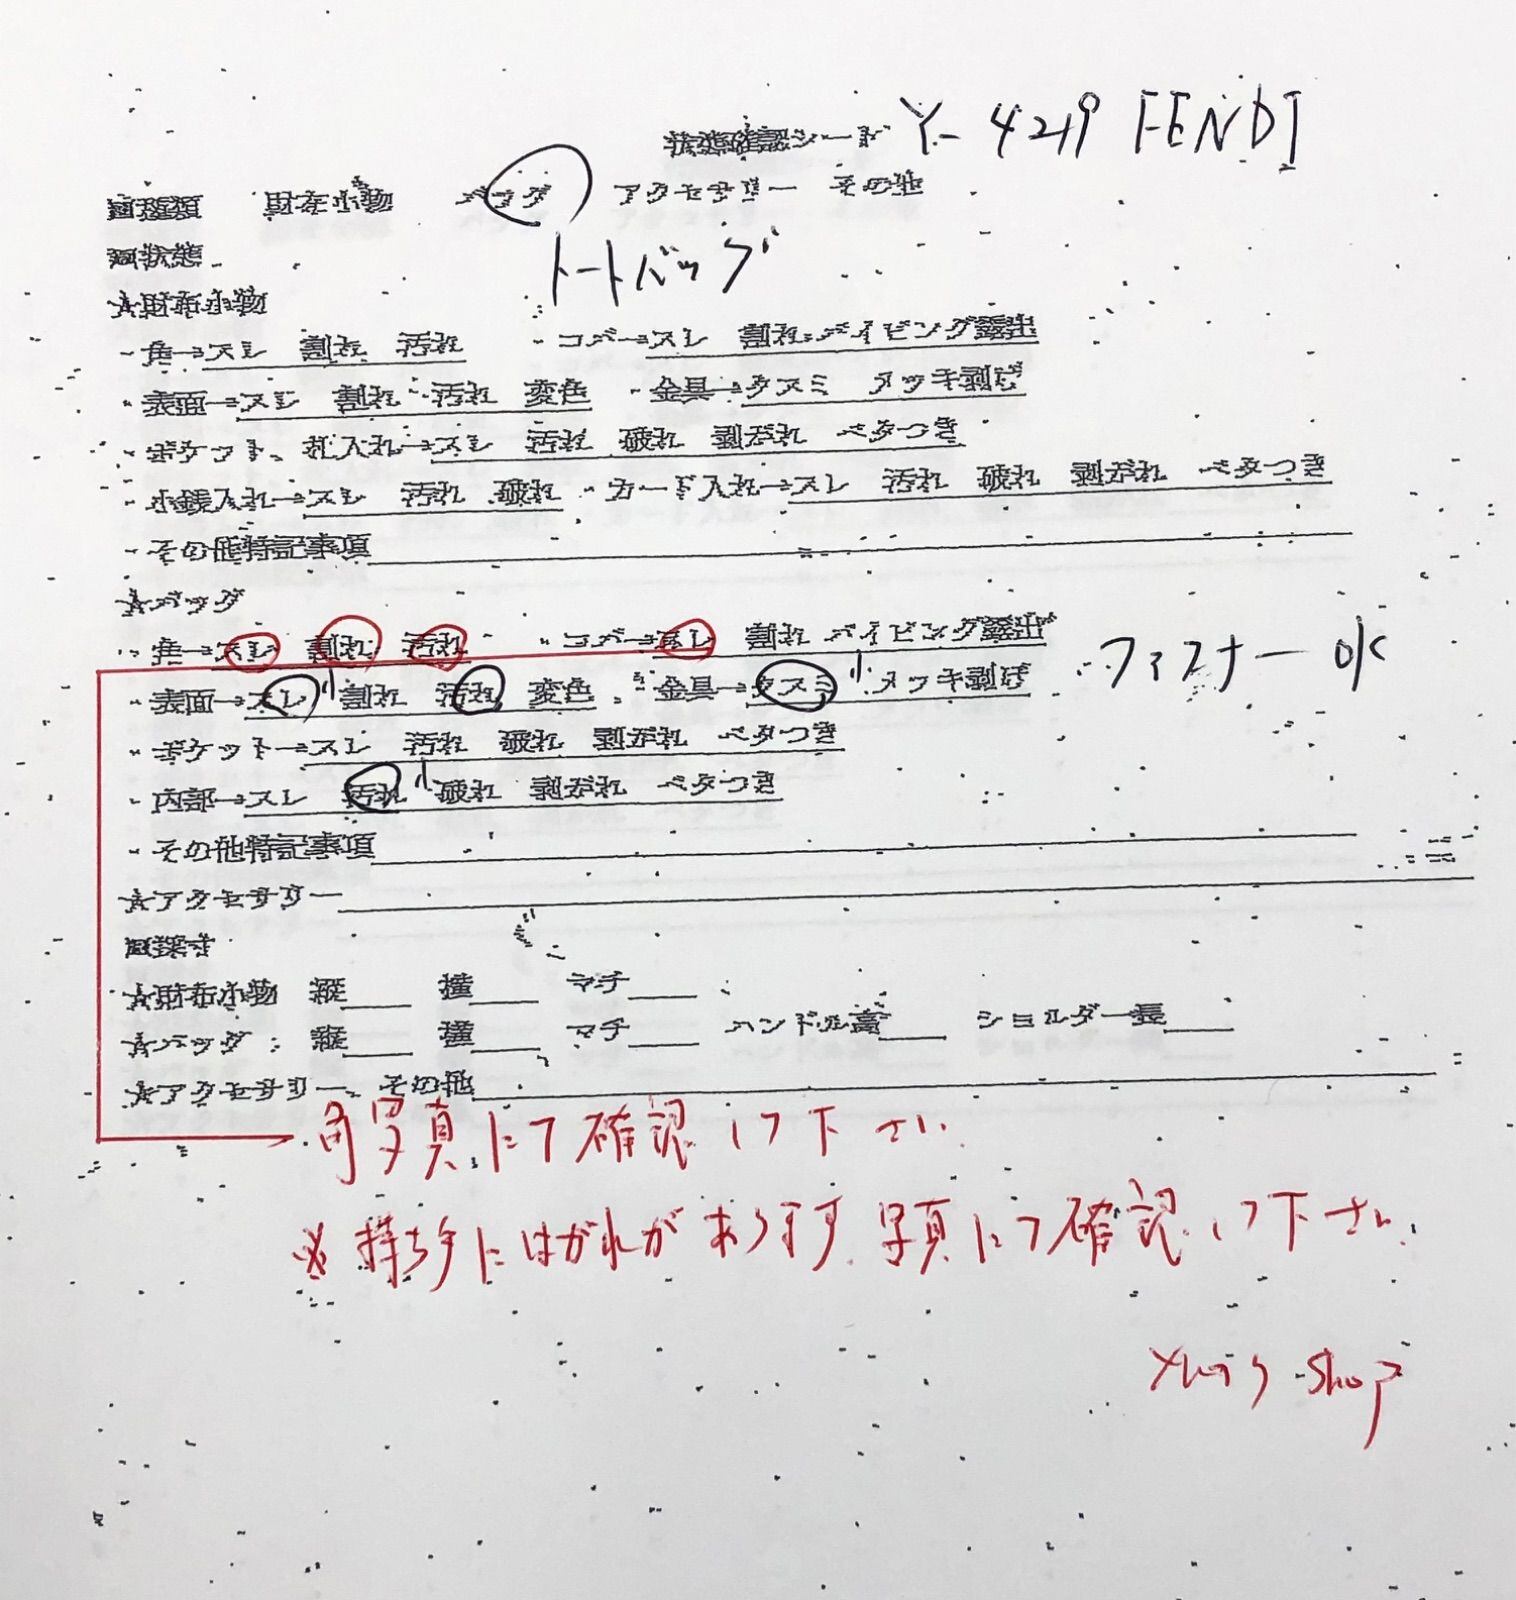 状態確認シート Y-4219 FENDI
□種類 財布小物 バッグ アクセサリー その他
□状態 トートバッグ
★財布小物
・角→スレ 割れ 汚れ ・コバ→スレ 割れ パイピング露出
・表面→スレ 割れ 汚れ 変色 ・金具→クスミ メッキ剥げ
・ポケット、札入れ→スレ 汚れ 破れ 剥がれ ベタつき
・小銭入れ→スレ 汚れ 破れ ・カード入れ→スレ 汚れ 破れ 剥がれ ベタつき
・その他特記事項
★バッグ
・角→スレ 割れ 汚れ ・コバ→スレ 割れ パイピング露出 ファスナー OK
・表面→スレ 小 割れ 汚れ 変色 ・金具→クスミ 小 メッキ剥げ
・ポケット→スレ 汚れ 破れ 剥がれ ベタつき
・内部→スレ 汚れ 小 破れ 剥がれ ベタつき
・その他特記事項
★アクセサリー
□採寸
★財布小物 縦 横 マチ
★バッグ 縦 横 マチ ハンドル高 ショルダー長
★アクセサリー、その他
角写真にて確認して下さい
※持ち手にはがれがあります。写真にて確認して下さい。
shop